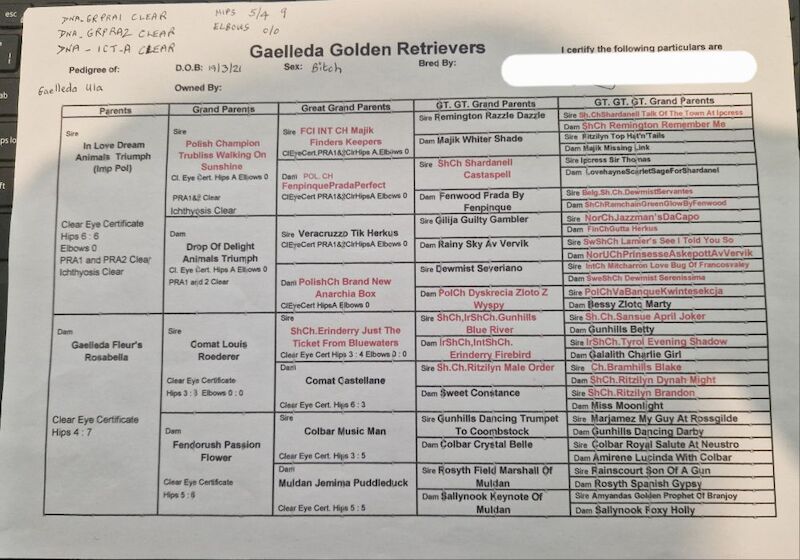 esc
DNA-GRPRA1 CLEAR
DNA-GRPRA2 CLEAR
DNA-ICT-A CLEAR
HIPS 5/4 9
ELBOWS 0/0
Gaelleda Golden Retrievers
I certify the following particulars are
Pedigree of:
D.O.B: 19/3/21
Sex: Bitch
Bred By:
Gaelleda Ula
Owned By:
Parents
Grand Parents
Great Grand Parents
GT. GT. Grand Parents
GT. GT. GT. Grand Parents
Sire
In Love Dream
Animals Triumph
(Imp Pol)
Clear Eye Certificate
Hips 6 : 6
Elbows 0
PRA1 and PRA2 Clear
Ichthyosis Clear
Dam
Gaelleda Fleur's
Rosabella
Clear Eye Certificate
Hips 4 : 7
Sire
Polish Champion
Trubliss Walking On
Sunshine
Cl. Eye Cert. Hips A Elbows 0
PRA1&2 Clear
Ichthyosis Clear
Dam
Drop Of Delight
Animals Triumph
Cl. Eye Cert. Hips A Elbows 0
PRA1 and 2 Clear
Sire
Comat Louis
Roederer
Clear Eye Certificate
Hips 3 : 3 Elbows 0 : 0
Dam
Fendorush Passion
Flower
Clear Eye Certificate
Hips 5 : 6
Sire FCI INT CH Majik
Finders Keepers
ClEyeCert.PRA1&2ClrHips A.Elbows 0
Dam POL. CH
FenpinquePradaPerfect
ClEyeCert.PRA1&2ClrHipsA Elbows 0
Sire Veracruzzo Tik Herkus
ClEyeCert.PRA1&2ClrHipsA Elbows 0
Dam PolishCh Brand New
Anarchia Box
ClEyeCert HipsA Elbows 0
Sire
ShCh.Erinderry Just The
Ticket From Bluewaters
Clear Eye Cert Hips 3 : 4 Elbows 0 : 0
Dam
Comat Castellane
Clear Eye Cert. Hips 6 : 3
Sire
Colbar Music Man
Clear Eye Cert. Hips 3 : 5
Dam
Muldan Jemima Puddleduck
Clear Eye Cert. Hips 5 : 5
Sire Remington Razzle Dazzle
Dam Majik Whiter Shade
Sire ShCh Shardanell
Castaspell
Dam Fenwood Prada By
Fenpinque
Sire Gilija Guilty Gambler
Dam Rainy Sky Av Vervik
Sire Dewmist Seyeriano
Dam PolCh Dyskrecja Zloto Z
Wyspy
Sire ShCh,IrShCh.Gunhills
Blue River
Dam IrShCh,IntShCh.
Erinderry Firebird
Sire Sh.Ch.Ritzilyn Male Order
Dam Sweet Constance
Sire Gunhills Dancing Trumpet
To Coombstock
Dam Colbar Crystal Belle
Sire Rosyth Field Marshall Of
Muldan
Dam Sallynook Keynote Of
Muldan
Sire Sh.ChShardanell Talk Of The Town At Ipcress
Dam ShCh Remington Remember Me
Sire Fitzilyn Top Hat'n'Tails
Dam Majik Missing Link
Sire Ipcress Sir Thomas
Dam LovehayneScarletSageForShardanel
Sire Belg.Sh.Ch.DewmistServantes
Dam ShChRamchainGreenGlowByFenwood
Sire NorChJazzman'sDaCapo
Dam FinChGutta Herkus
Sire SwShCh Lamier's See I Told You So
Dam NorUChPrinsesseAskepottAvVervik
Sire IntCh Mitcharron Love Bug Of Francosvaley
Dam SweShCh Dewmist Serenissima
Sire PolChVaBanqueKwintesekcja
Dam Bessy Zloto Marty
Sire Sh.Ch.Sansue April Joker
Dam Gunhills Betty
Sire IrShCh.Tyrol Evening Shadow
Dam Galalith Charlie Girl
Sire Ch.Bramhills Blake
Dam ShCh.Ritzilyn Dynah Might
Sire ShCh.Ritzilyn Brandon
Dam Miss Moonlight
Sire Marjamez My Guy At Rossgilde
Dam Gunhills Dancing Darby
Sire Colbar Royal Salute At Neustro
Dam Amirene Lucinda With Colbar
Sire Rainscourt Son Of A Gun
Dam Rosyth Spanish Gypsy
Sire Amyandas Golden Prophet Of Branjoy
Dam Sallynook Foxy Holly